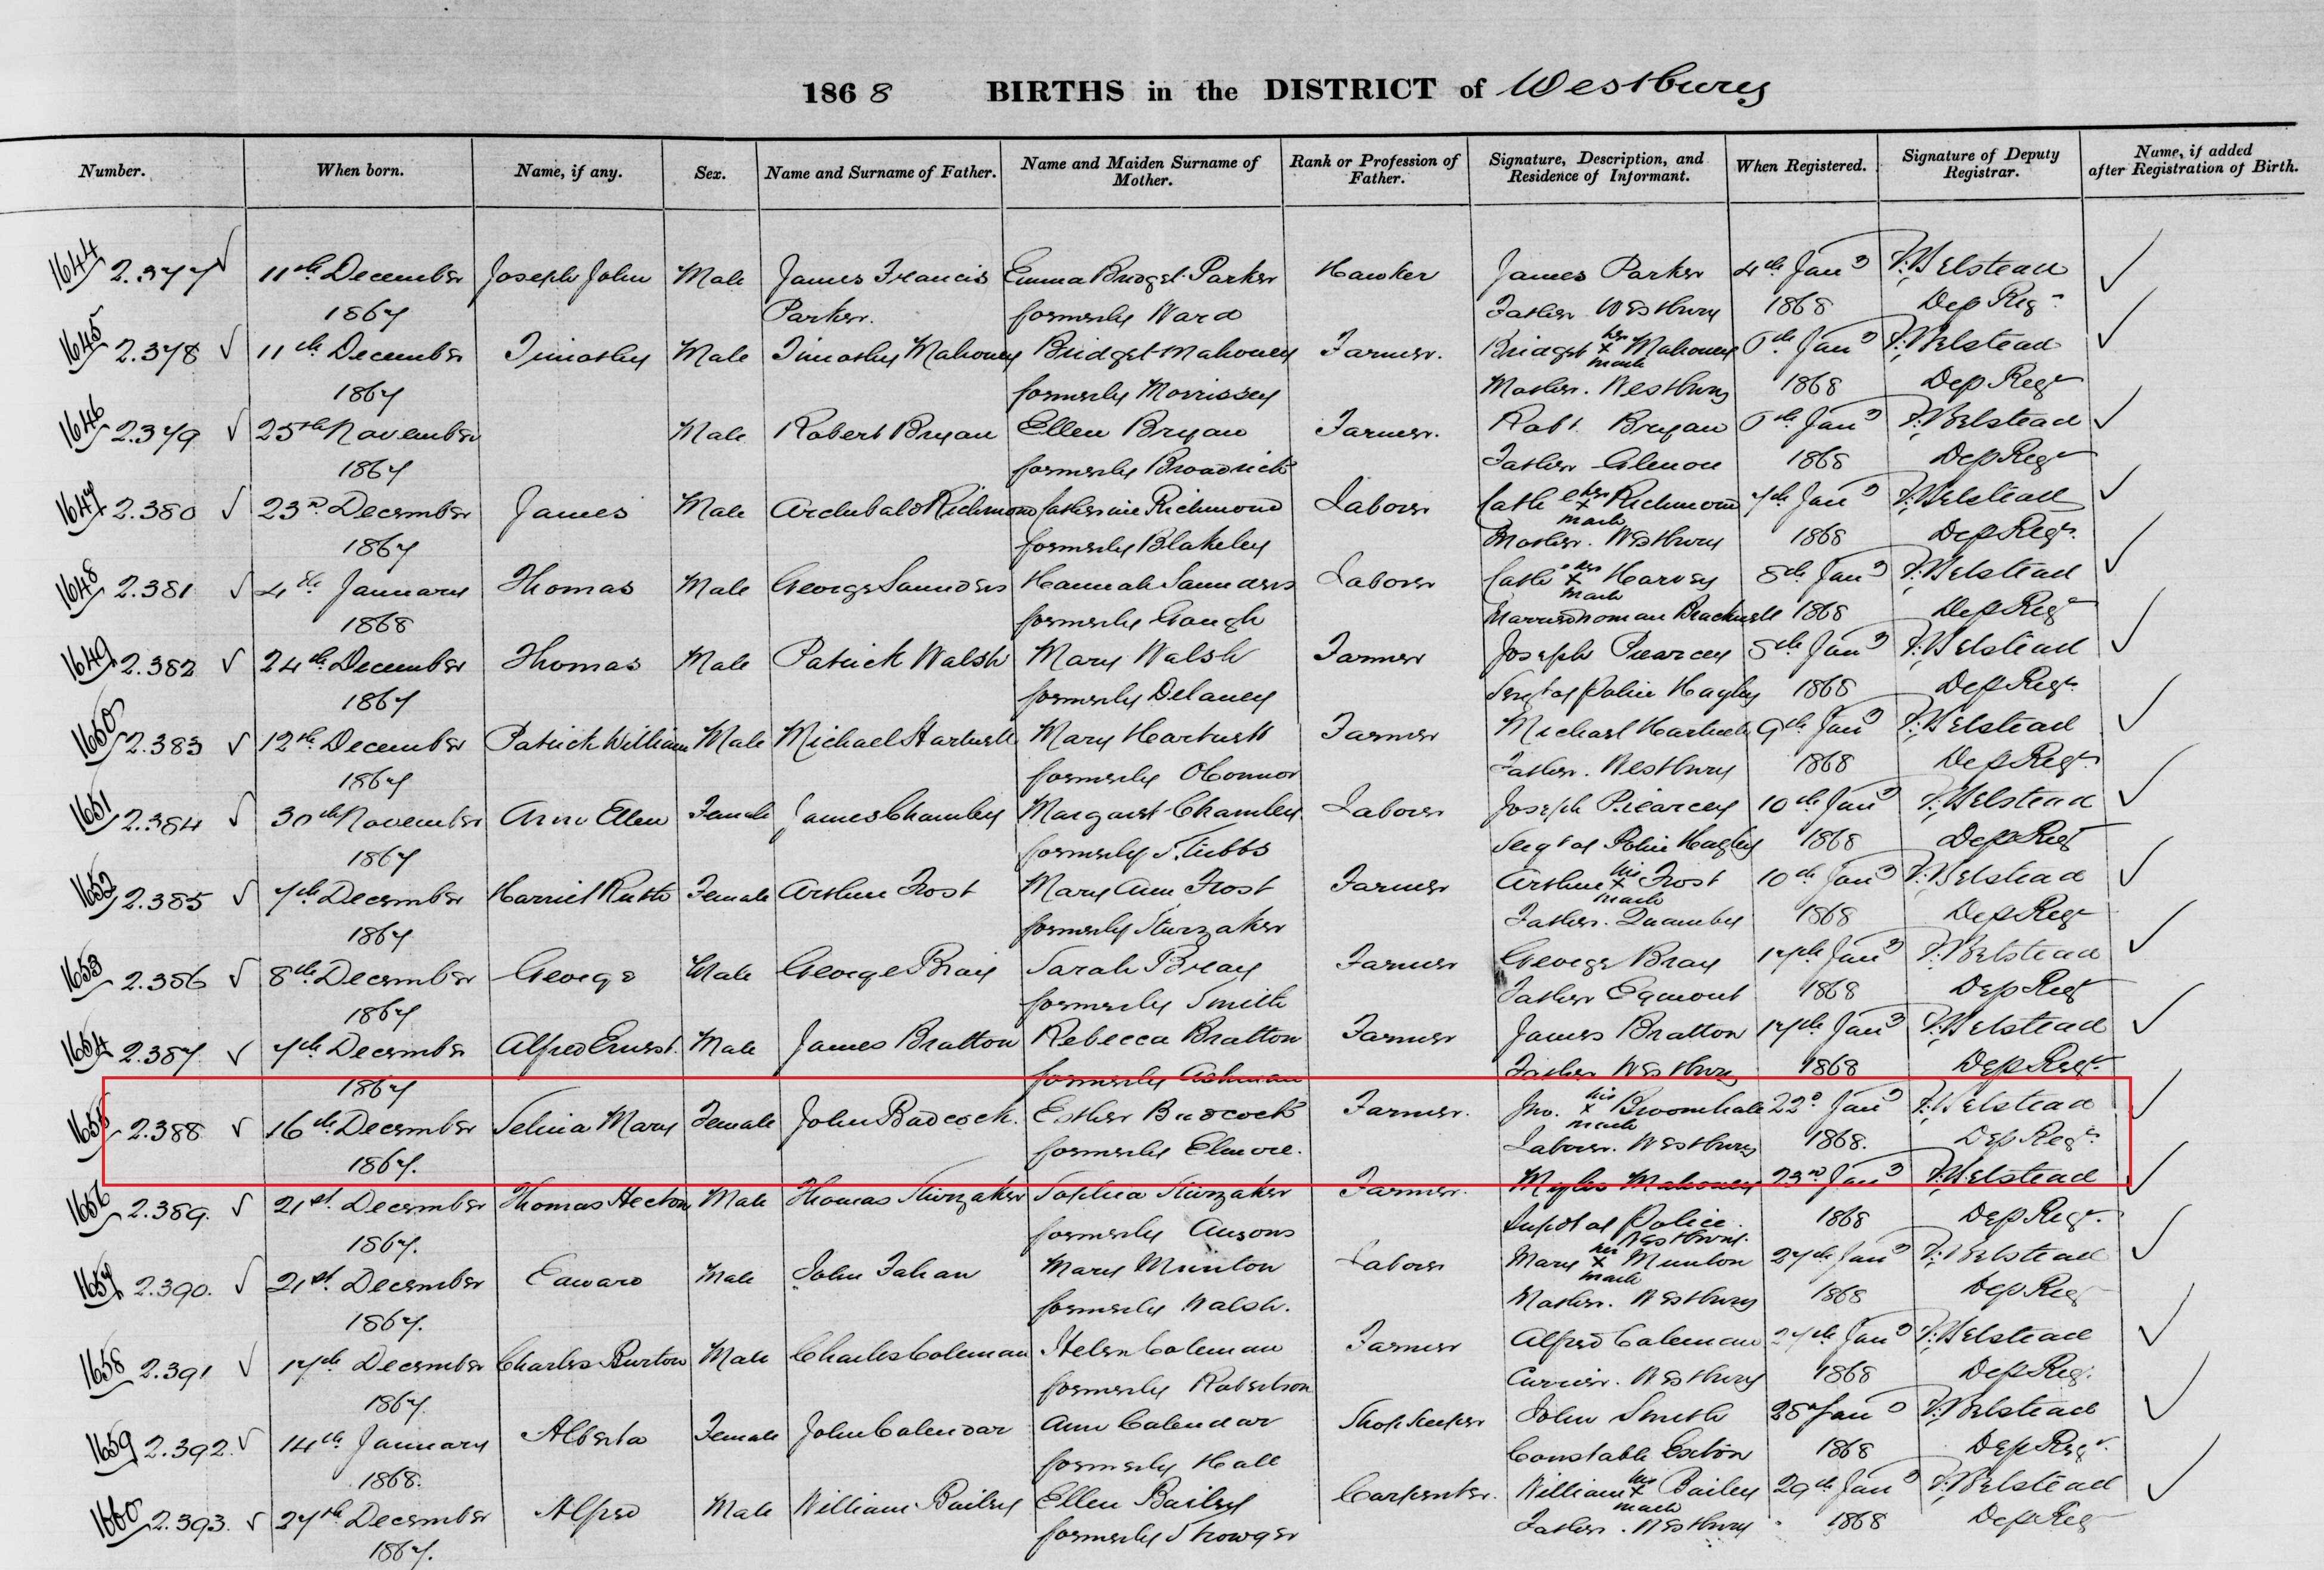 1868 BIRTHS in the DISTRICT of Westbury
Number. When born. Name, if any. Sex. Name and Surname of Father. Name and Maiden Surname of Mother. Rank or Profession of Father. Signature, Description, and Residence of Informant. When Registered. Signature of Deputy Registrar. Name, if added after Registration of Birth.
1644 2.377 √ 11th December Joseph John Male James Francis Emma Bridget Parker Hawker James Parker 4th Jany Belstead √
1867 Parker. formerly Ward Father Westbury 1868 Dep Regr
1645 2.378 √ 11th December Timothy Male Timothy Mahoney Bridget Mahoney Farmer. Bridget her x mark Mahoney Jany Belstead √
1867 formerly Morrissey Mother. Westbury 1868 Dep Regr
1646 2.379 √ 25th November Male Robert Bryan Ellen Bryan Farmer. Robt. Bryan Jany Belstead √
1867 formerly Broadrick Father Glenore 1868 Dep Regr
1647 2.380 √ 23rd December James Male Archibald Richmond Catherine Richmond Labourer Cathe her x mark Richmond 7th Jany Belstead √
1867 formerly Blakeley Mother. Westbury 1868 Dep Regr.
1648 2.381 √ 4th January Thomas Male George Saunders Hannah Saunders Labourer Cathe her x mark Harvey 8th Jany Belstead √
1868 formerly Gough Married woman 1868 Dep Regr
1649 2.382 √ 24th December Thomas Male Patrick Walsh Mary Walsh Farmer Joseph Piearcey 8th Jany Belstead √
1867 formerly Delaney Sergt of Police Hagley 1868 Dep Regr.
1650 2.383 √ 12th December Patrick William Male Michael Hartnett Mary Hartnett Farmer Michael Hartnett 9th Jany Belstead √
1867 formerly OConnor Father. Westbury 1868 Dep Regr.
1651 2.384 √ 30th November Ann Ellen Female James Chamley Margaret Chamley Labourer Joseph Piearcey 10th Jany Belstead √
1867 formerly Stubbs Sergt of Police Hagley 1868 Dep Regr
1652 2.385 √ 7th December Harriet Ruth Female Arthur Frost Mary Ann Frost Farmer Arthur his x mark Frost 10th Jany Belstead √
1867 formerly Sturzaker Father. Quamby 1868 Dep Regr
1653 2.386 √ 8th December George Male George Bray Sarah Bray Farmer George Bray 17th Jany Belstead √
1867 formerly Smith Father Egmont 1868 Dep Regr
1654 2.387. √ 7th December Alfred Ernest. Male James Bratton Rebecca Bratton Farmer James Bratton 17th Jany Belstead √
1867 formerly Ashman Father Westbury 1868 Dep Regr
1655 2.388 √ 16th December Selina Mary Female John Badcock. Esther Badcock Farmer. Jno. his x mark Broomhale 22d Jany Belstead √
1867. formerly Elmore. Labourer. Westbury 1868. Dep Regr.
1656 2.389. √ 21st December Thomas Hector Male Thomas Sturzaker Sophia Sturzaker Farmer. Myles Mahoney 23rd Jany Belstead √
1867. formerly Ansons Supdt of Police. Westbury. 1868 Dep Regr.
1657 2.390. √ 21st December Edward Male John Fahan Mary Munton Labourer Mary her x mark Munton 27th Jany Belstead √
1867. formerly Walsh. Mother. Westbury 1868 Dep Regr
1658 2.391 √ 17th December Charles Burton Male Charles Coleman Helen Coleman Farmer Alfred Coleman 27th Jany Belstead √
1867. formerly Robertson Currier. Westbury 1868 Dep Regr.
1659 2.392. √ 14th January Alberta Female John Calendar Ann Calendar Shop keeper John Smith 28 Jany Belstead √
1868. formerly Hall Constable Exton 1868 Dep Regr.
1660 2.393. √ 27th December Alfred Male William Bailey Ellen Bailey Carpenter. William his x mark Bailey 29th Jany Belstead √
1867. formerly Showger Father. Westbury 1868 Dep Regr